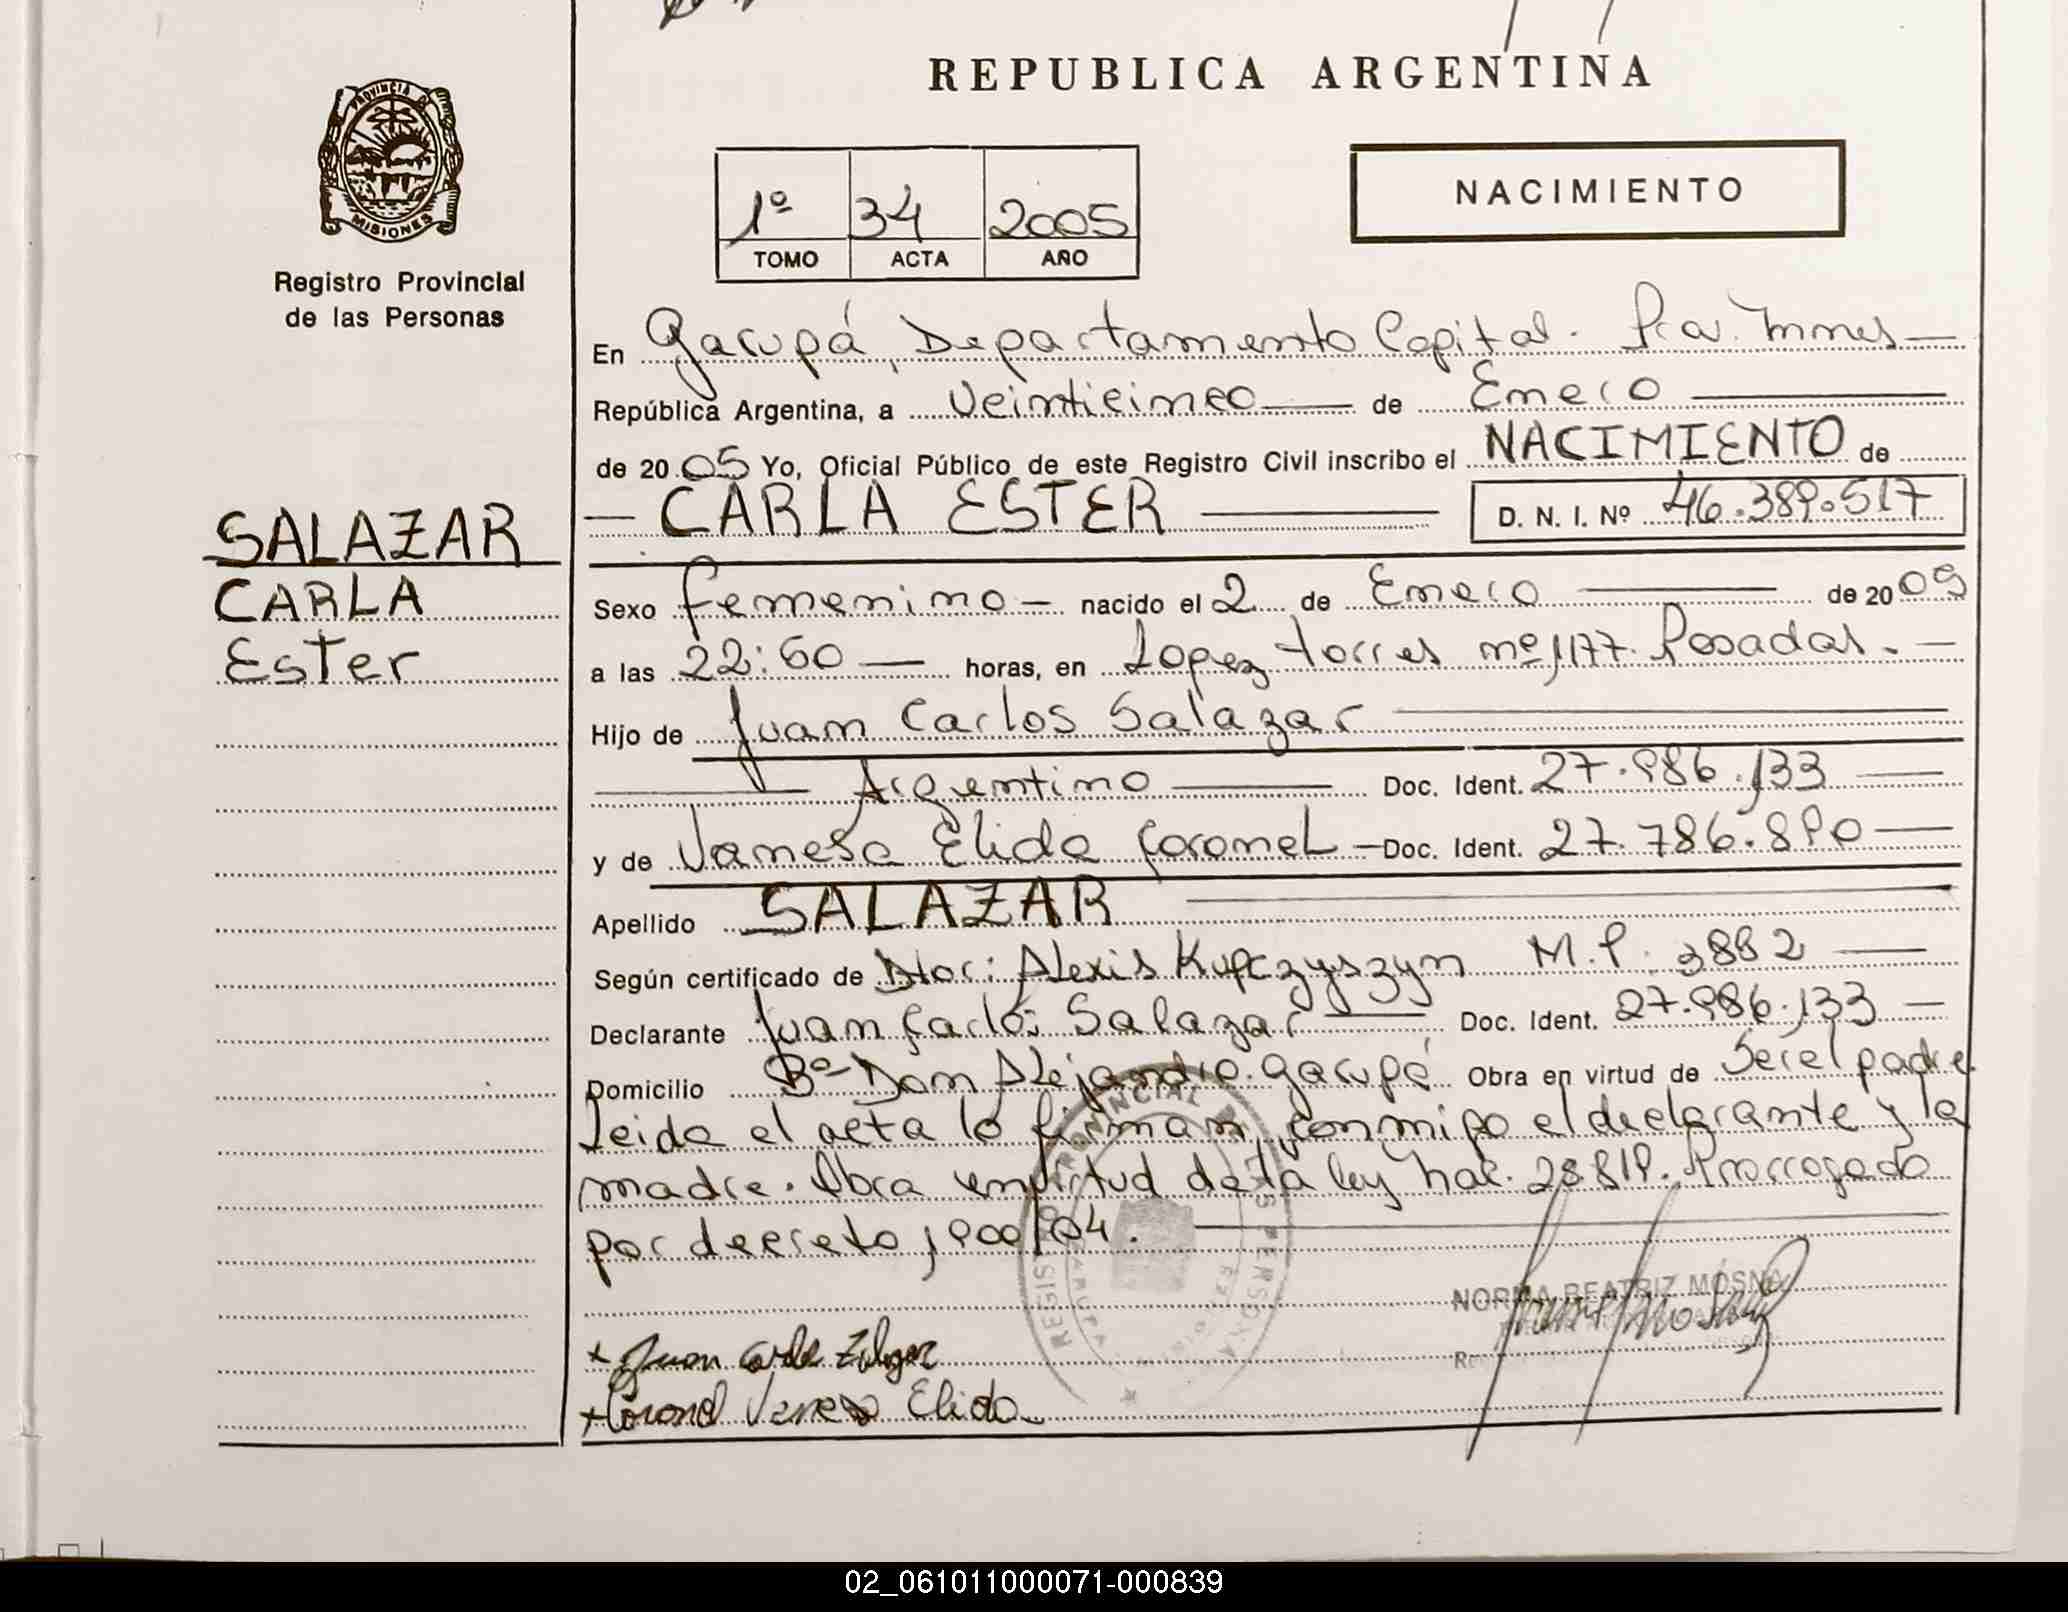 REPUBLICA ARGENTINA
PROVINCIA D
MISIONES
Registro Provincial
de las Personas
1º 34 2005
TOMO ACTA AÑO
NACIMIENTO
En Garupá, Departamento Capital. Prov. Mnes
República Argentina, a Veinticinco de Enero
de 2005 Yo, Oficial Público de este Registro Civil inscribo el NACIMIENTO de
CARLA ESTER D. N. I. Nº 46.389.517
SALAZAR
CARLA
Ester
Sexo femenino nacido el 2 de Enero de 2005
a las 22:60 horas, en Lopez torres nº 1177. Posadas.
Hijo de Juan Carlos Salazar
Argentino Doc. Ident. 27.986.133
y de Vanesa Elida Coronel Doc. Ident. 27.786.890
Apellido SALAZAR
Según certificado de Dtor: Alexis Kupczyszyn M.P. 3882
Declarante Juan Carlos Salazar Doc. Ident. 27.986.133
Domicilio Bº Don Alejandro. Garupá Obra en virtud de Ser el padre.
Leida el acta lo firman, conmigo el declarante y la
madre. Obra en virtud de la ley nac. 25.819. Prorrogada
por decreto 1900/04.
NORMA BEATRIZ MOSNA
Juan
Coronel Vanesa Elida
02_061011000071-000839